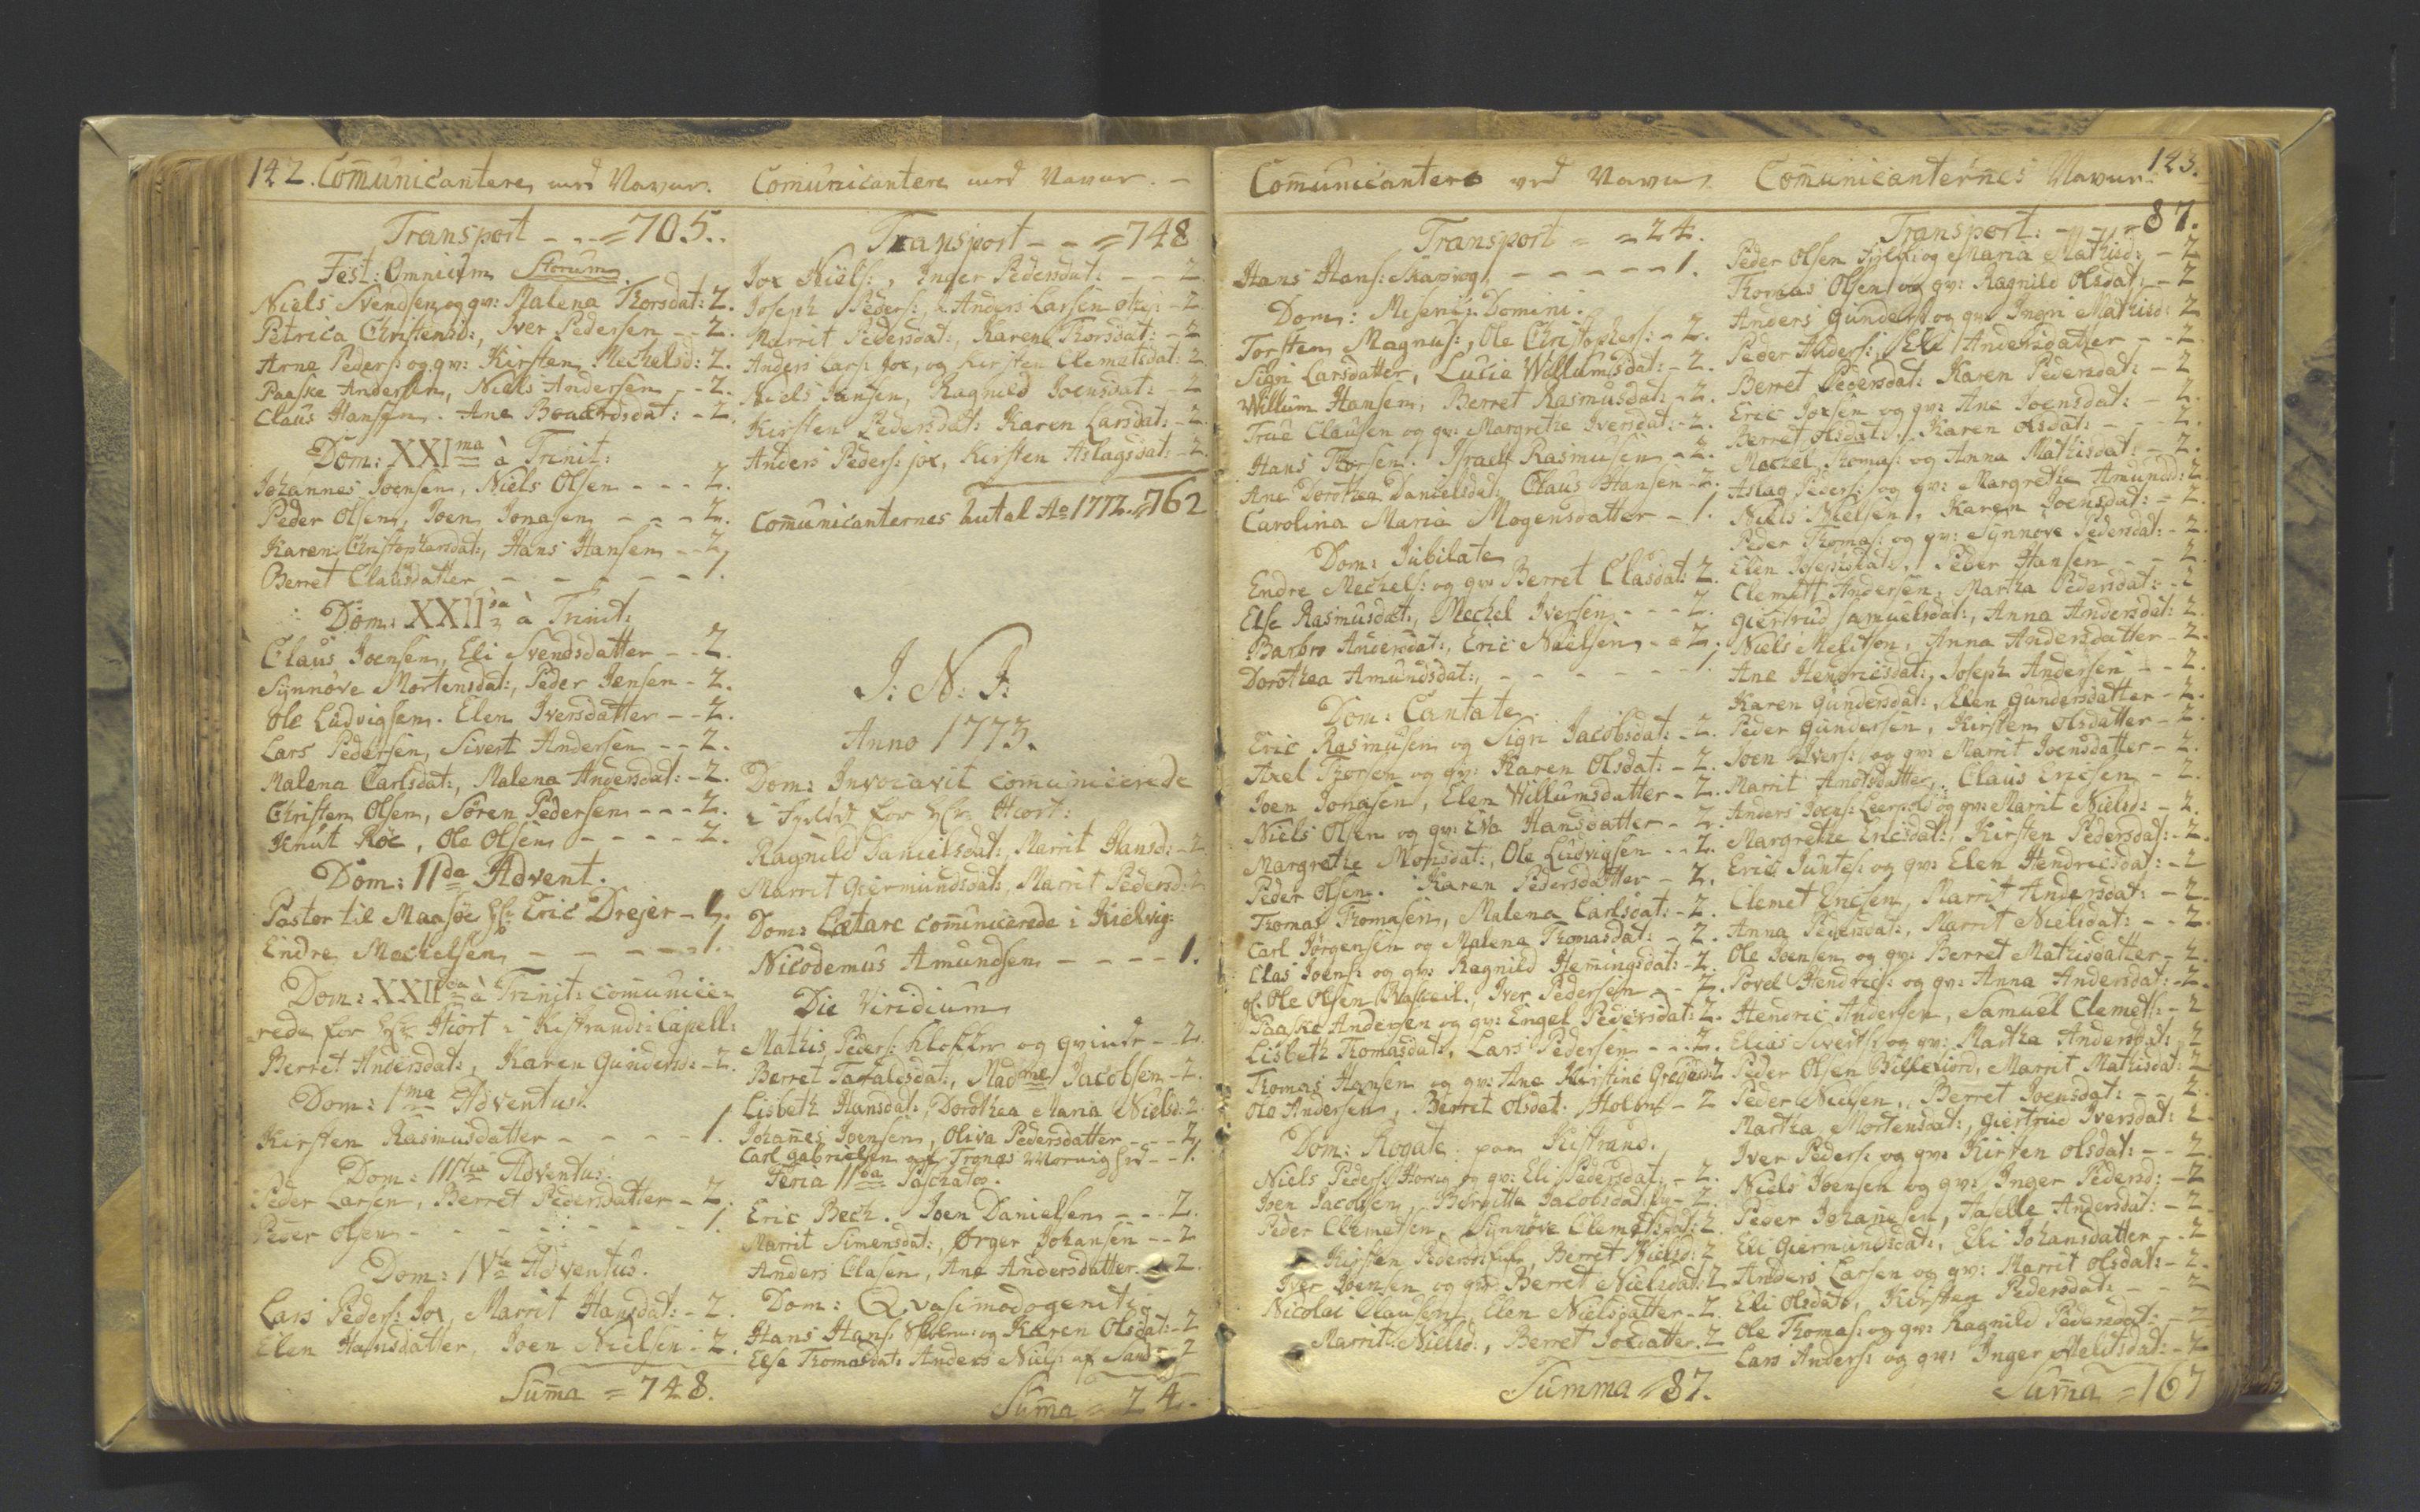 142. Com̄unicantere, med Navne.
Transport - - = 705.
Fest: Omnium Storum.
Niels Svendsen og qv: Malena Thorsdat: 2.
Petrica Christensd:, Iver Pedersen - - 2.
Arne Peders: og qv: Kirsten Mechelsd: 2.
Paaske Andersen, Niels Andersen - - 2.
Claus Hansen. Ane Bouardsdat: - 2.
Dom: XXIma à Trinit:
Johannes Joensen, Niels Olsen - - - 2.
Peder Olsen, Joen Jonasen - - - 2.
Karen Christophersdat:, Hans Hansen - - 2.
Berret Clausdatter - - - - - 1.
Dom: XXIIda à Trinit:
Claus Joensen, Eli Svendsdatter - - 2.
Synnöve Mortensdat:, Peder Jensen - 2.
Ole Ludvigsen. Elen Iversdatter - - 2.
Lars Pedersen, Sivert Andersen - - 2.
Malena Carlsdat:, Malena Andersdat: - 2.
Christen Olsen, Sören Pedersen - - - 2.
Knut Roe, Ole Olsen - - - - 2.
Dom: IIda Advent.
Pastor til Maasöe Hr: Eric Drejer - 1.
Endre Mechelsen - - - - - 1.
Dom: XXIIda à Trinit: com̄unice-
rede for Hr: Hiort i Kistrands: Capell:
Berret Andersdat:, Karen Gundersd: - 2.
Dom: 1ma Adventus.
Kirsten Rasmusdatter - - - - 1.
Dom: IIItia Adventus.
Peder Larsen, Berret Pedersdatter - 2.
Peder Olsen - - - - - - - 1.
Dom: IVta Adventus.
Lars Peders: Jox, Marrit Hansdat: - 2.
Elen Hansdatter, Joen Nielsen - 2.
Sum̄a = 748.
Com̄unicantere med Navne. -
Transport - - = 748
Jox Niels:, Inger Pedersdat: - - 2
Joseph Peders:, Anders Larsen - 2.
Marrit Pedersdat:, Karen Thorsdat: - 2
Anders Lars: Jox, og Kirsten Clemetsdat: 2
Niels Jansen, Ragnild Joensdat: - 2
Kirsten Pedersdat: Karen Larsdat: - 2.
Anders Peders: jox, Kirsten Aslagsdat: - 2.
Com̄unicanternes Antal Ao 1772. = 762
I: N: J:
Anno 1773.
Dom: Invocavit com̄unicerede
i for Hr: Hiort:
Ragnild Danielsdat:, Marrit Hansd: - 2.
Marrit Giermundsdat:, Marrit Pedersd: 2.
Dom: Lætare com̄unicerede i Kielvig:
Nicodemus Amundsen - - - - 1.
Die Viridium
Mathis Peders: Klokker og qvinde - - 2
Berret Tafalesdat:, Madme Jacobsen - 2.
Lisbeth Hansdat:, Dorothea Maria Nielsd: 2.
Johan̄es Joensen, Oliva Pedersdatter - - - 2
Carl Gabrielsen af - - 1.
Feria IIda Paschatos.
Eric Bech. Joen Danielsen - - - 2.
Marrit Simensdat:, Ørger Johansen - - 2
Anders Clasen, Ane Andersdatter. - 2.
Dom: Qvasimodogeniti.
Hans Hans: og Karen Olsdat: - 2
Else Thomasdat: Anders Niels: af Sand - 2
Sum̄a = 24.
Com̄unicantere med Navne
Transport = = 24.
Hans Hans: - - - - - - 1.
Dom: Miseric: Domini.
Torsten Magnus:, Ole Christophers: - 2.
Sigri Larsdatter, Lucie Willumsdat: - 2.
Willum Hansen, Berret Rasmusdat: - 2.
True Clausen og qv: Margrethe Iversdat: - 2.
Hans Thorsen. Israel Rasmusen - 2.
Ane Dorothea Danielsdat: Claus Hansen - 2.
Carolina Maria Mogensdatter - 1.
Dom: Jubilate
Endre Mechels: og qv: Berret Clasdat: 2.
Else Rasmusdat:, Mechel Iversen - - - 2.
Barbro Andersdat:, Eric Nielsen - - 2.
Dorothea Amundsdat: - - - - - 1.
Dom: Cantate.
Eric Rasmusen og Sigri Jacobsdat: - 2.
Axel Thorsen og qv: Karen Olsdat: - 2.
Joen Jonasen, Elen Willumsdatter - 2.
Niels Olsen og qv: Eva Hansdatter - 2.
Margrethe Monsdat:, Ole Ludvigsen - - 2.
Peder Olsen. Karen Pedersdatter - 2.
Thomas Thomasen, Malena Carlsdat: - 2.
Carl Jørgensen og Malena Thomasdat: - 2.
Clas Joens: og qv: Ragnild Hem̄ingsdat: - 2.
Ole Olsen, Iver Pedersen - - 2.
Paaske Andersen og qv: Engel Pedersdat: 2.
Lisbeth Thomasdat:, Lars Pedersen - - - 2.
Thomas Hansen og qv: Ane Kirstine Gregersd: 2
Ole Andersen, Berrit Olsdat: Holm - 2
Dom: Rogate paa Kistrand.
Niels Peders: og qv: Eli Pedersdat: - 2.
Joen Jacobsen, Birgitta Jacobsdat: - 2.
Peder Clemetsen, Synnöve Clemetsdat: 2.
Kirsten, Berret Nielsd: 2
Iver Joensen og qv: Berret Nielsdat: 2
Nicolai Clausen, Elen Nielsdatter - 2.
Marrit Nielsd:, Berret Joxdatter. 2
Summa = 87.
Com̄unicanternes Navne. 143.
Transport: - - - 87.
Peder Olsen og Maria Mathisd: - 2
Thomas Olsen og qv: Ragnild Olsdat: - 2
Anders Gunders: og qv: Ingri Mathisd: 2
Peder Anders:, Eli Andersdatter - - 2.
Berret Pedersdat: Karen Pedersdat: - 2
Eric Joxsen og qv: Ane Joensdat: - 2.
Berret Olsdat:, Karen Olsdat: - - - 2.
Mechel Thomas: og Anna Mathisdat: - 2.
Aslag Peders: og qv: Margrethe Amundsd: 2
Niels Nielsen, Karen Joensdat: - 2.
Peder Thomas: og qv: Synnove Pedersdat: - 2.
Elen Josephsdat:, Peder Hansen - - 2
Clemett Andersen, Martha Pedersdat: - 2
Giertrud Samuelsdat:, Anna Andersdat: 2.
Niels Melitsen, Anna Andersdatter - 2.
Ane Hendricsdat:, Joseph Andersen - - 2.
Karen Gundersdat:, Elen Gundersdatter - 2.
Peder Gundersen, Kirsten Olsdatter - 2.
Joen Ivers: og qv: Marrit Joensdatter - 2.
Marrit Andersdatter, Claus Ericsen - 2.
Anders Joens: Leerpold og qv: Marrit Nielsd: - 2.
Margrethe Ericsdat:, Kirsten Pedersdat: - 2.
Eric Juntes: og qv: Elen Hendricsdat: - 2
Clemet Ericsen, Marrit Andersdat: - 2.
Anna Pedersdat:, Marrit Nielsdat: - - 2.
Ole Joensen og qv: Berret Mathisdatter - 2.
Povel Hendrics: og qv: Anna Andersdat: - 2.
Hendric Andersen, Samuel Clemets: - 2
Elias Siverts: og qv: Martha Andersdat: 2
Peder Olsen Billefiord, Marrit Mathisdat: 2
Peder Nielsen, Berret Joensdat: - - 2.
Martha Mortensdat:, Giertrud Iversdat: 2
Iver Peders: og qv: Kirsten Olsdat: - - 2.
Niels Joensen og qv: Inger Pedersd: - 2
Peder Johanesen, Taselle Andersdat: - 2
Eli Giermundsdat:, Eli Johansdatter - - 2
Anders Larsen og qv: Marrit Olsdat: - 2.
Eli Olsdat:, Kirsten Pedersdat: - - 2
Ole Thomas: og qv: Ragnild Pedersdat: - 2
Lars Anders: og qv: Inger Melitsdat: - 2
Sum̄a = 167